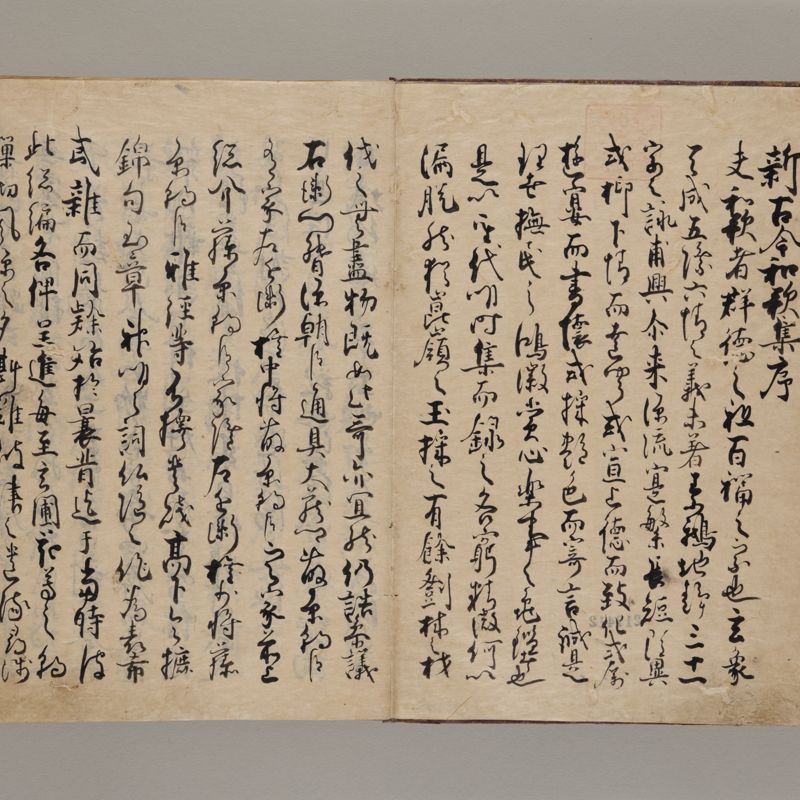 新古今和歌集序
夫和歌者群徳之祖百福之宗也玄象
天成五際六情之義未著素鵝地静三十一
字之詠甫興尓来源流寔繁長短雖異
或抒下情而達聞或宣上徳而致化或属
遊宴而書懐或採艶色而寄言誠是
理世撫民之鴻徽賞心楽事之亀鑑者也
是以聖代明時集而録之各窮精微何以
漏脱然猶崑嶺之玉採之有餘鄧林之材
伐之無盡物既如此哥亦宜然仍詔参議
右衛門督源朝臣通具大蔵卿藤原朝臣
有家左近衛権中将藤原朝臣定家前上
総介藤原朝臣家隆左近衛権少将藤
原朝臣雅経等不擇貴賎高下令摭
錦句玉章神明之詞仏陀之作為表希
夷雜而同隷始於曩昔迄于當時彼
此総編各俾呈進毎至玄圃花芳之朝